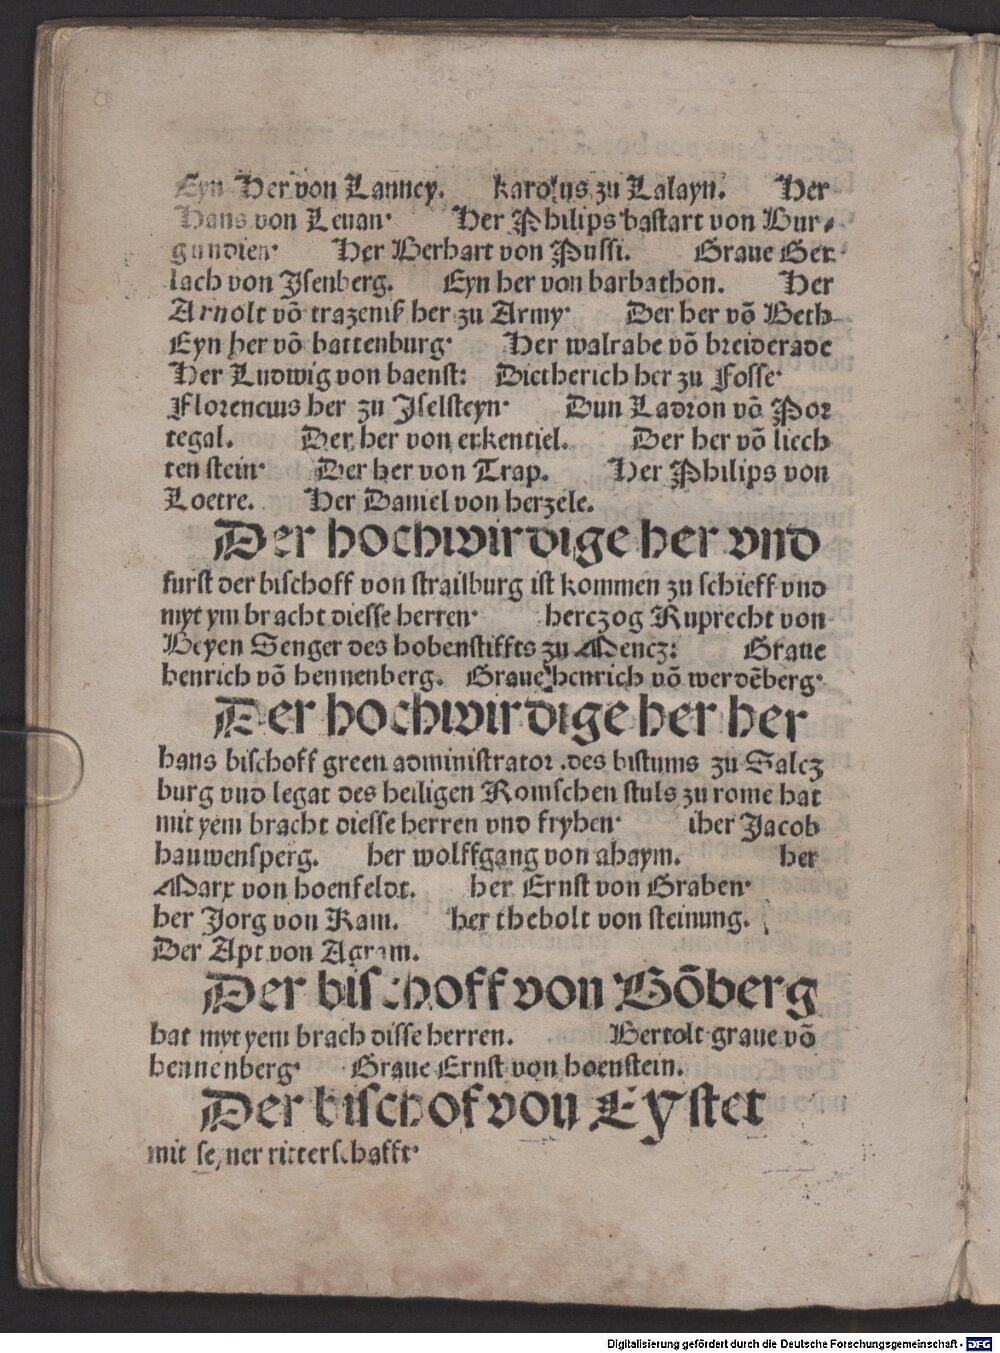 Eyn Her von Lanney. karolus zu Lalayn. Her
Hans von Leuan· Her Philips bastart von Bur⸗
gundien· Her Gerhart von Pussi. Graue Ger
lach von Jsenberg. Eyn her von barbathon. Her
Arnolt võ trazenik her zu Army· Der her võ Beth
Eyn her võ battenburg· Her walrabe võ breiderade
Her Ludwig von baenst: Dietherich her zu Fosse·
Florencius her zu Jselsteyn· Dun Ladron võ Por
tegal. Der her von erkentiel. Der her võ liech
ten stein· Der her von Trap. Her Philips von
Loetre. Her Daniel von herzele.
Der hochwirdige her vnd
furst der bischoff von strailburg ist kommen zu schieff vnd
myt ym bracht diesse herren· herczog Ruprecht von
Beyen Senger des hohenstiffts zu Mencz: Graue
henrich võ hennenberg. Graue henrich võ werdẽberg·
Der hochwirdige her her
hans bischoff green administrator .des bistums zu Salcz
burg vnd legat des heiligen Romschen stuls zu rome hat
mit yem bracht diesse herren vnd fryhen· iher Jacob
hauwensperg. her wolffgang von ahaym. her
Marx von hoenfeldt. her Ernst von Graben·
her Jorg von Ram. her thebolt von steinung.
Der Apt von Agram.
Der bischoff von Gõberg
hat myt yem brach disse herren. Bertolt graue võ
hennenberg· Graue Ernst von hoenstein.
Der bischof von Eystet
mit seyner ritterschafft·
Digitalisierung gefördert durch die Deutsche Forschungsgemeinschaft - DFG